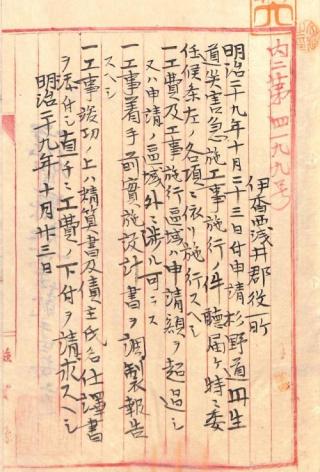 内二第四一九九号
伊香西浅井郡役所
明治二十九年十月二十三日付申請杉野道田生
道失害急施工事施行ノ件聴届ケ特ニ委
任候条左ノ各項ニ依リ施行スヘシ
一工費及工事施行区域ハ申請額ヲ超過シ
又ハ申請ノ區域外ニ渉ル可ラス
一工事着手前實施設計書ヲ調製報告
スヘシ
一工事竣功ノ上ハ精算書及債主氏名仕譯書
ヲ添付シ直チニ工費ノ下付ヲ請求スヘシ
明治二十九年十月廿三日